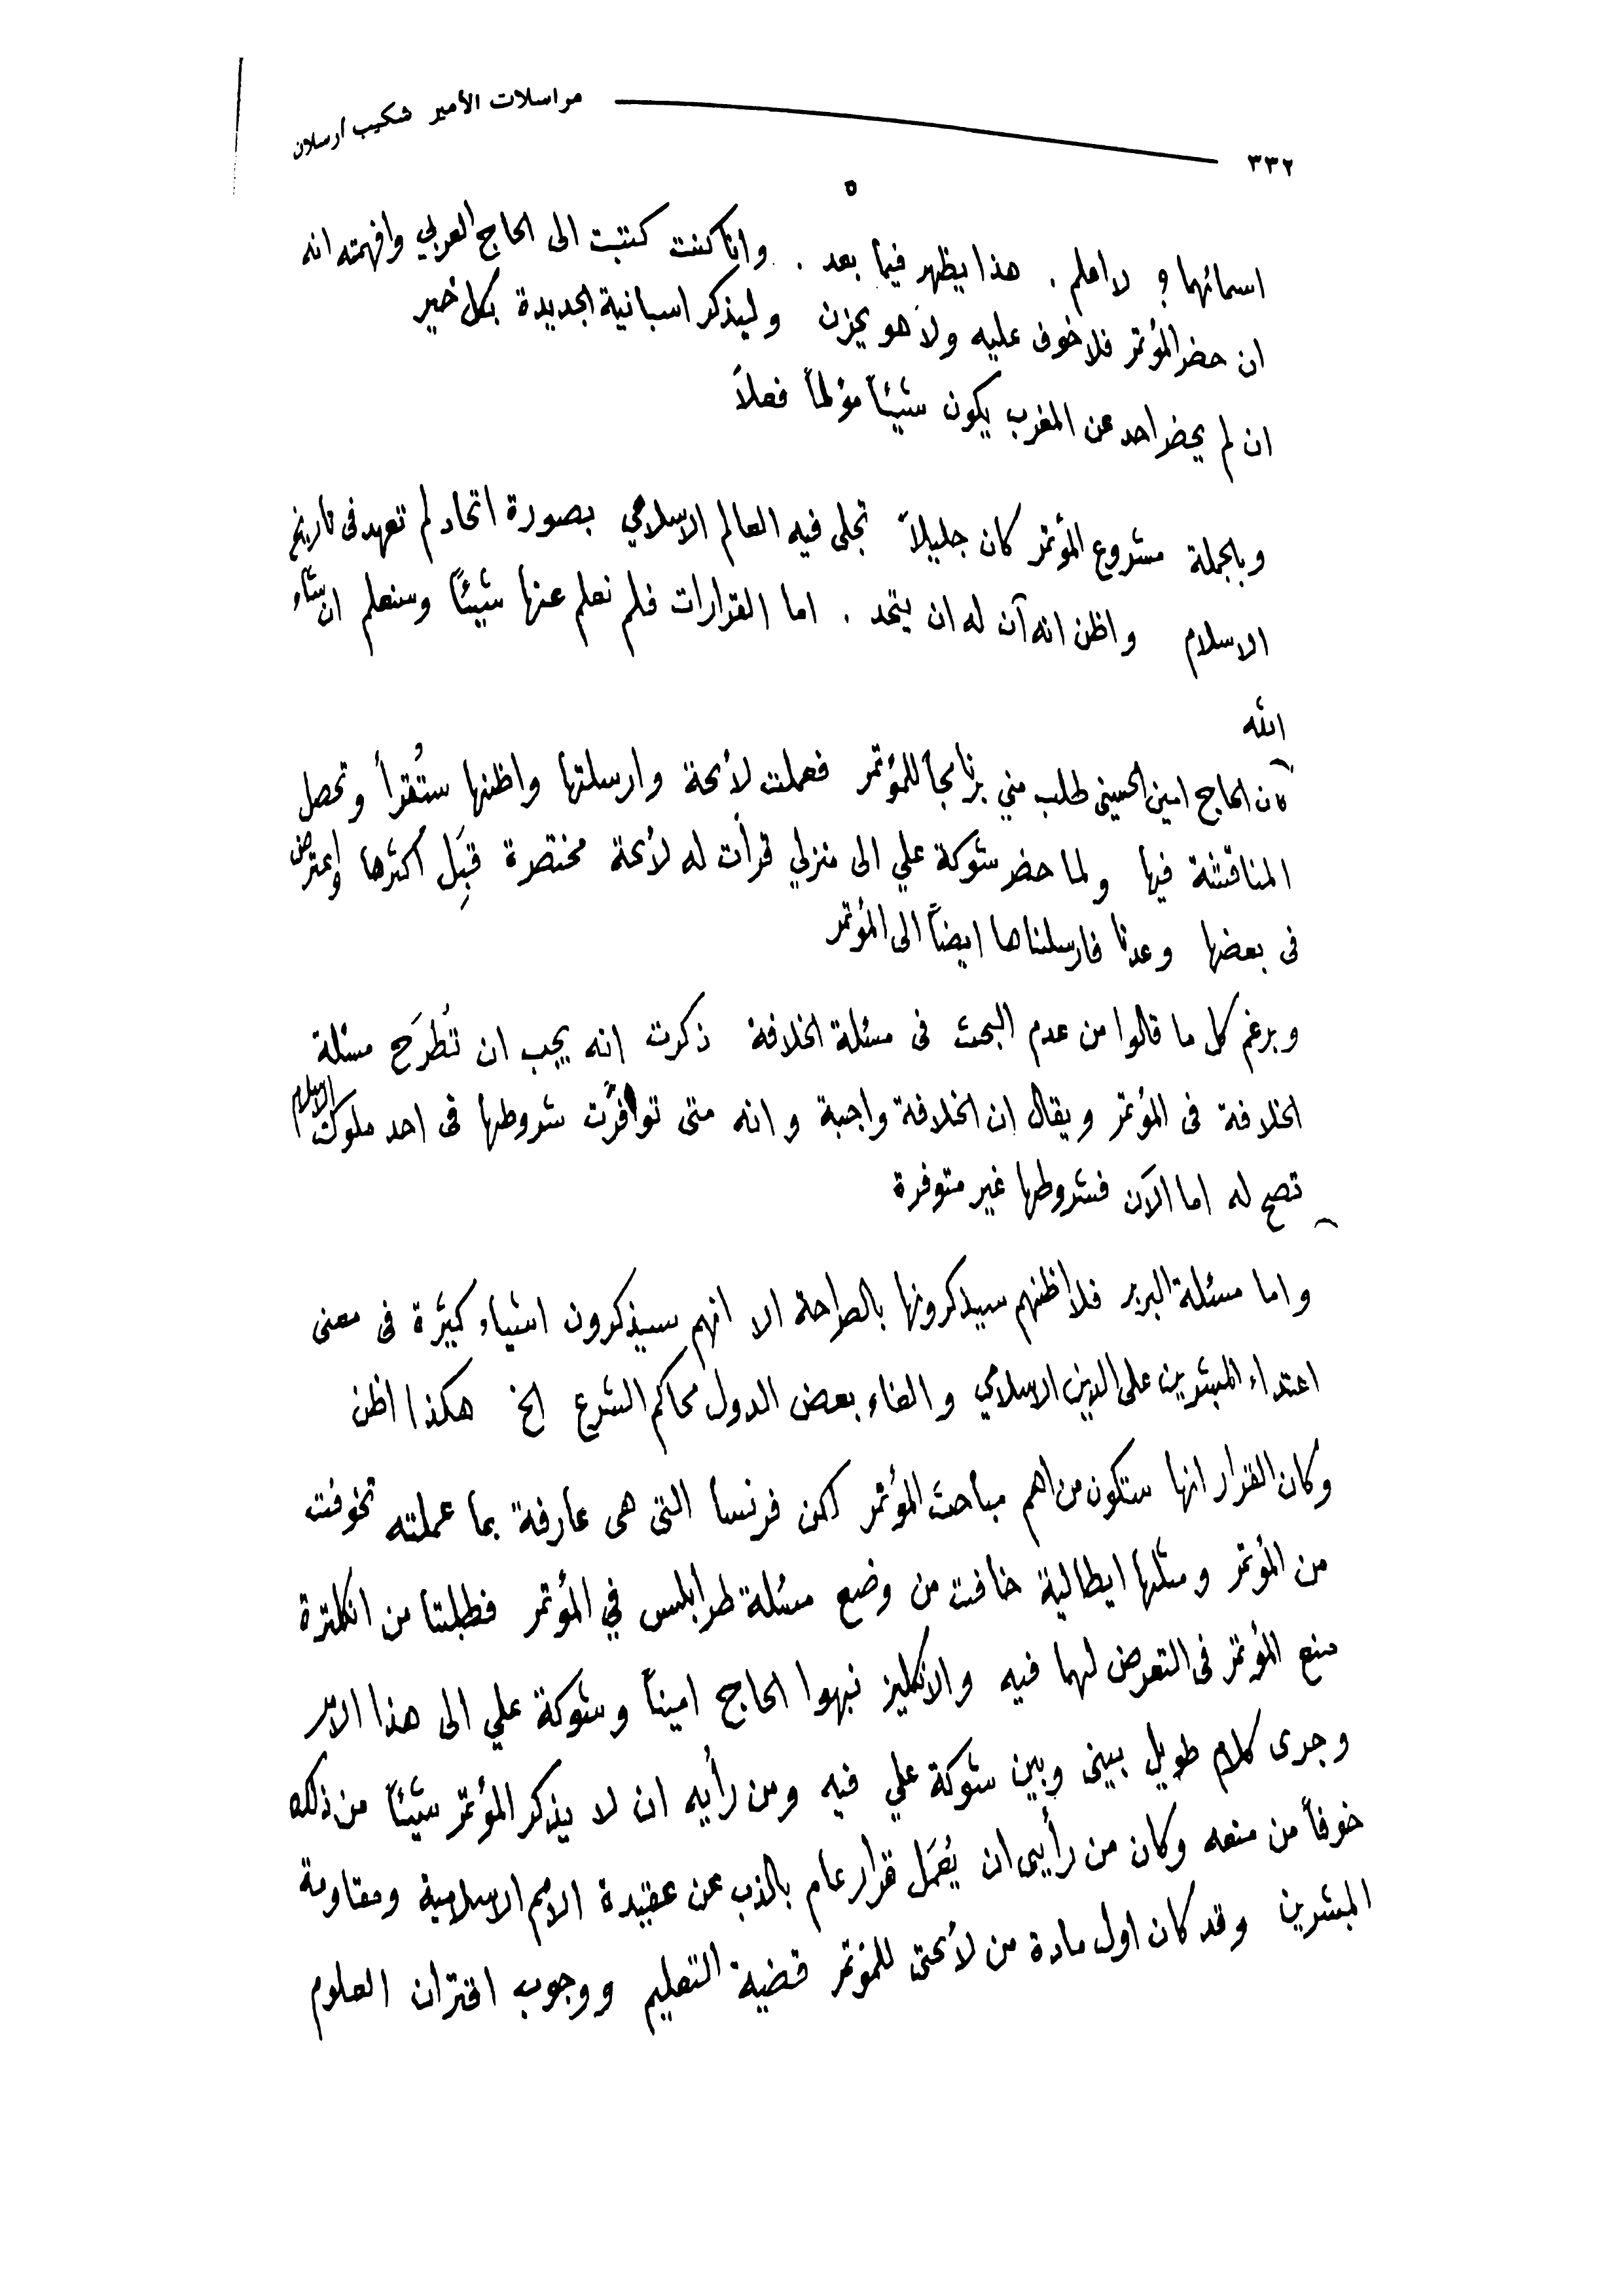 ٣٣٢ مراسلات الأمير شكيب أرسلان
٥
اسمائهما ؟ لا اعلم . هذا يظهر فيما بعد . وانا كنت كتبت الى الحاج العربي وافهمته انه
ان حضر المؤتمر فلا خوف عليه ولا هو يحزن وليذكر اسبانية الجديدة بكل خير
ان لم يحضر احد عن المغرب يكون شيئاً مؤلماً فعلاً
وبالجملة مشروع المؤتمر كان جليلاً تجلى فيه العالم الاسلامي بصورة اتحاد لم تعهد فى تاريخ
الاسلام واظن انه آن له ان يتحد . اما القرارات فلم نعلم عنها شيئاً وسنعلم ان شاء
الله
كان الحاج امين الحسينى طلب مني برنامجاً للمؤتمر فعملت لائحة وارسلتها واظنها ستُقرأ وتحصل
المناقشة فيها ولما حضر شوكة علي الى منزلي قرأت له لائحة مختصرة قبِل أكثرها واعترض
فى بعضها وعدنا فارسلناها ايضاً الى المؤتمر
وبرغم كل ما قالوا من عدم البحث فى مسئلة الخلافة ذكرت انه يجب ان تُطرَح مسئلة
الخلافة فى المؤتمر ويقال ان الخلافة واجبة وانه متى توافرت شروطها فى احد ملوك الاسلام
تصح له اما الآن فشروطها غير متوفرة
واما مسئلة البربر فلا اظنهم سيذكرونها بالصراحة الا انهم سيذكرون اشياء كثيرة فى معنى
اعتداء المبشرين على الدين الاسلامي والغاء بعض الدول محاكم الشرع الخ هكذا اظن
وكان القرار انها ستكون من اهم مباحث المؤتمر لكن فرنسا التى هى عارفة بما عملته تخوفت
من المؤتمر ومثلها ايطالية خافت من وضع مسئلة طرابلس في المؤتمر فطلبتا من انكلترة
منع المؤتمر فى التعرض لهما فيه والانكليز نبهوا الحاج اميناً وشوكة علي الى هذا الامر
وجرى كلام طويل بينى وبين شوكة علي فيه ومن رأيه ان لا يذكر المؤتمر شيئاً من ذلك
خوفاً من منعه وكان من رأيى ان يُعمَل قرار عام بالذب عن عقيدة الامم الاسلامية ومقاومة
المبشرين وقد كان اول مادة من لائحتى للمؤتمر قضية التعليم ووجوب اقتران العلوم